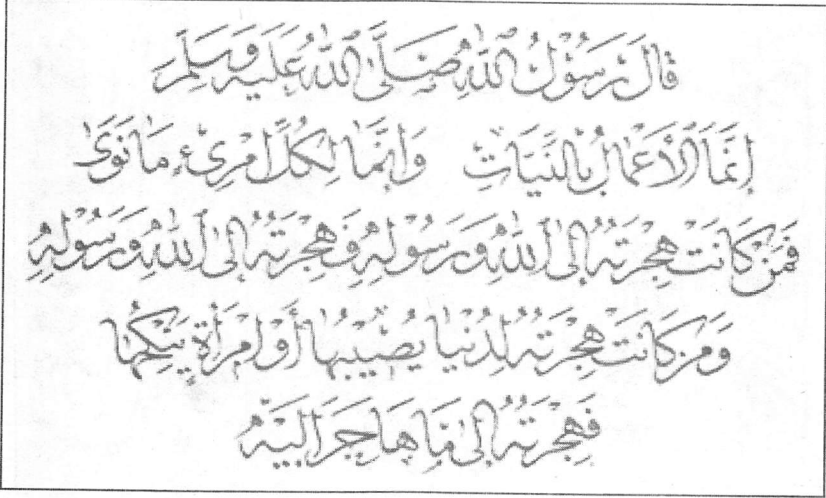 قَالَ رَسُوْلُ ٱللهِ صَلَّى ٱللهُ عَلَيْهِ وَسَلَّمَ
إِنَّمَا ٱلْأَعْمَالُ بِالنِّيَّاتِ وَإِنَّمَا لِكُلِّ امْرِئٍ مَا نَوَى
فَمَنْ كَانَتْ هِجْرَتُهُ إِلَى ٱللهِ وَرَسُوْلِهِ فَهِجْرَتُهُ إِلَى ٱللهِ وَرَسُوْلِهِ
وَمَنْ كَانَتْ هِجْرَتُهُ لِدُنْيَا يُصِيْبُهَا أَوْ امْرَأَةٍ يَنْكِحُهَا
فَهِجْرَتُهُ إِلَى مَا هَاجَرَ إِلَيْهِ